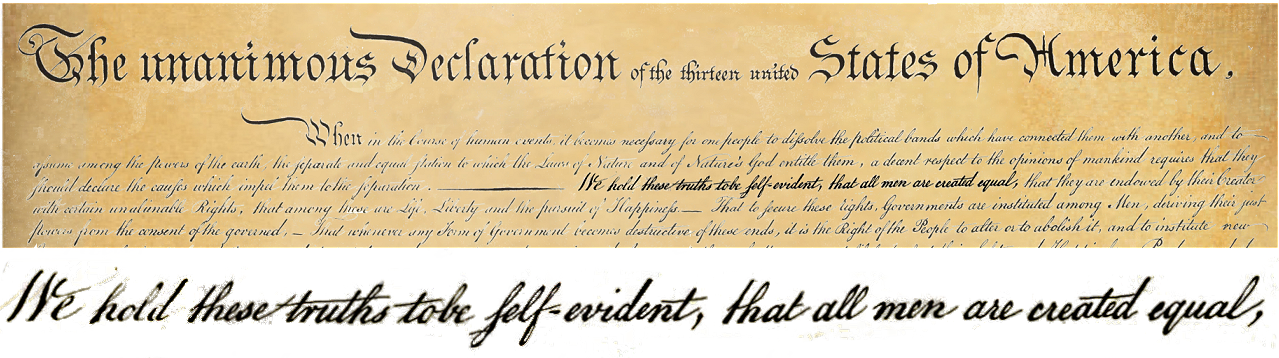 The unanimous Declaration of the thirteen united States of America.
When in the Course of human events, it becomes necessary for one people to diſsolve the political bands which have connected them with another, and to
aſsume among the powers of the earth, the ſeparate and equal ſtation to which the Laws of Nature and of Nature's God entitle them, a decent respect to the opinions of mankind requires that they
ſhould declare the cauſes which impel them to the ſeparation. We hold these truths to be ſelf-evident, that all men are created equal, that they are endowed by their Creator
with certain unalienable Rights, that among these are Life, Liberty and the pursuit of Happineſs. — That to secure these rights, Governments are instituted among Men, deriving their just
powers from the consent of the governed, — That whenever any Form of Government becomes destructive of these ends, it is the Right of the People to alter or to abolish it, and to institute new
We hold these truths to be ſelf-evident, that all men are created equal,